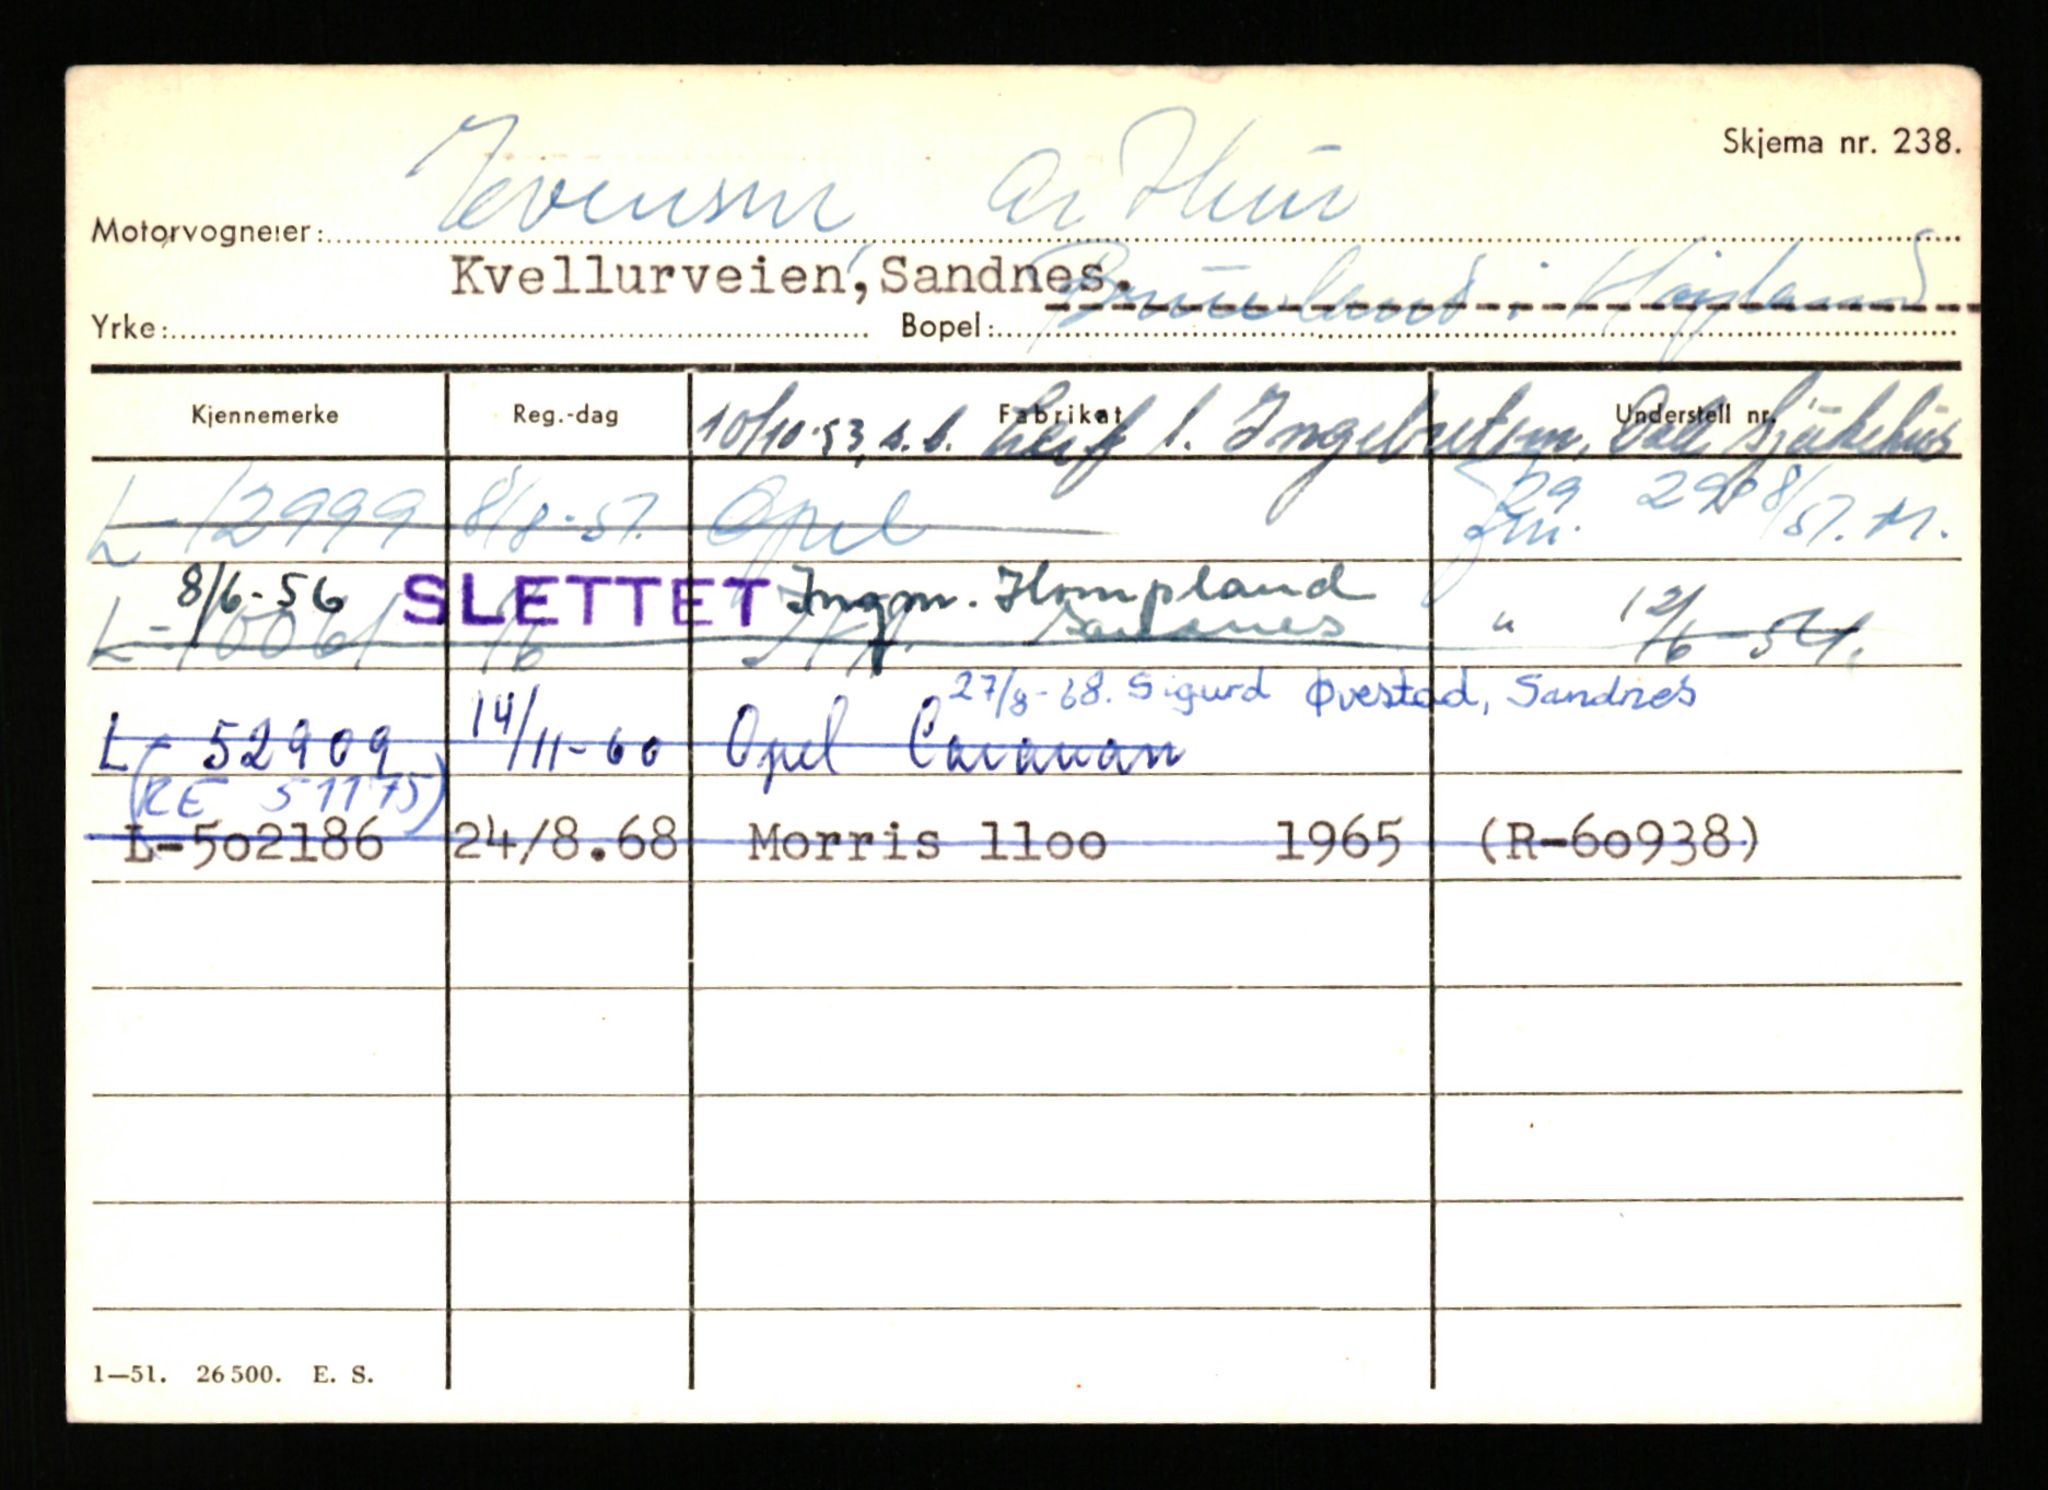 Skjema nr. 238.
Motorvogneier: Evensen, Arthur
Kvellurveien, Sandnes.
Yrke: Bopel: i Høyland
Kjennemerke Reg.-dag Fabrikat Understell nr.
10/10-53, s.b. Leif I. Ingebretsen, Dale Sjukehus
L-12999 8/8-51. Opel 29/8/51. M.
8/6-56 SLETTET Ingm. Hompland
L-10061 Sandnes " 12/6-54.
27/8-68. Sigurd Øvestad, Sandnes
L-52909 14/11-60 Opel Caravan
(RE 51175)
L-502186 24/8.68 Morris 11oo 1965 (R-6o938)
1—51. 26500. E. S.